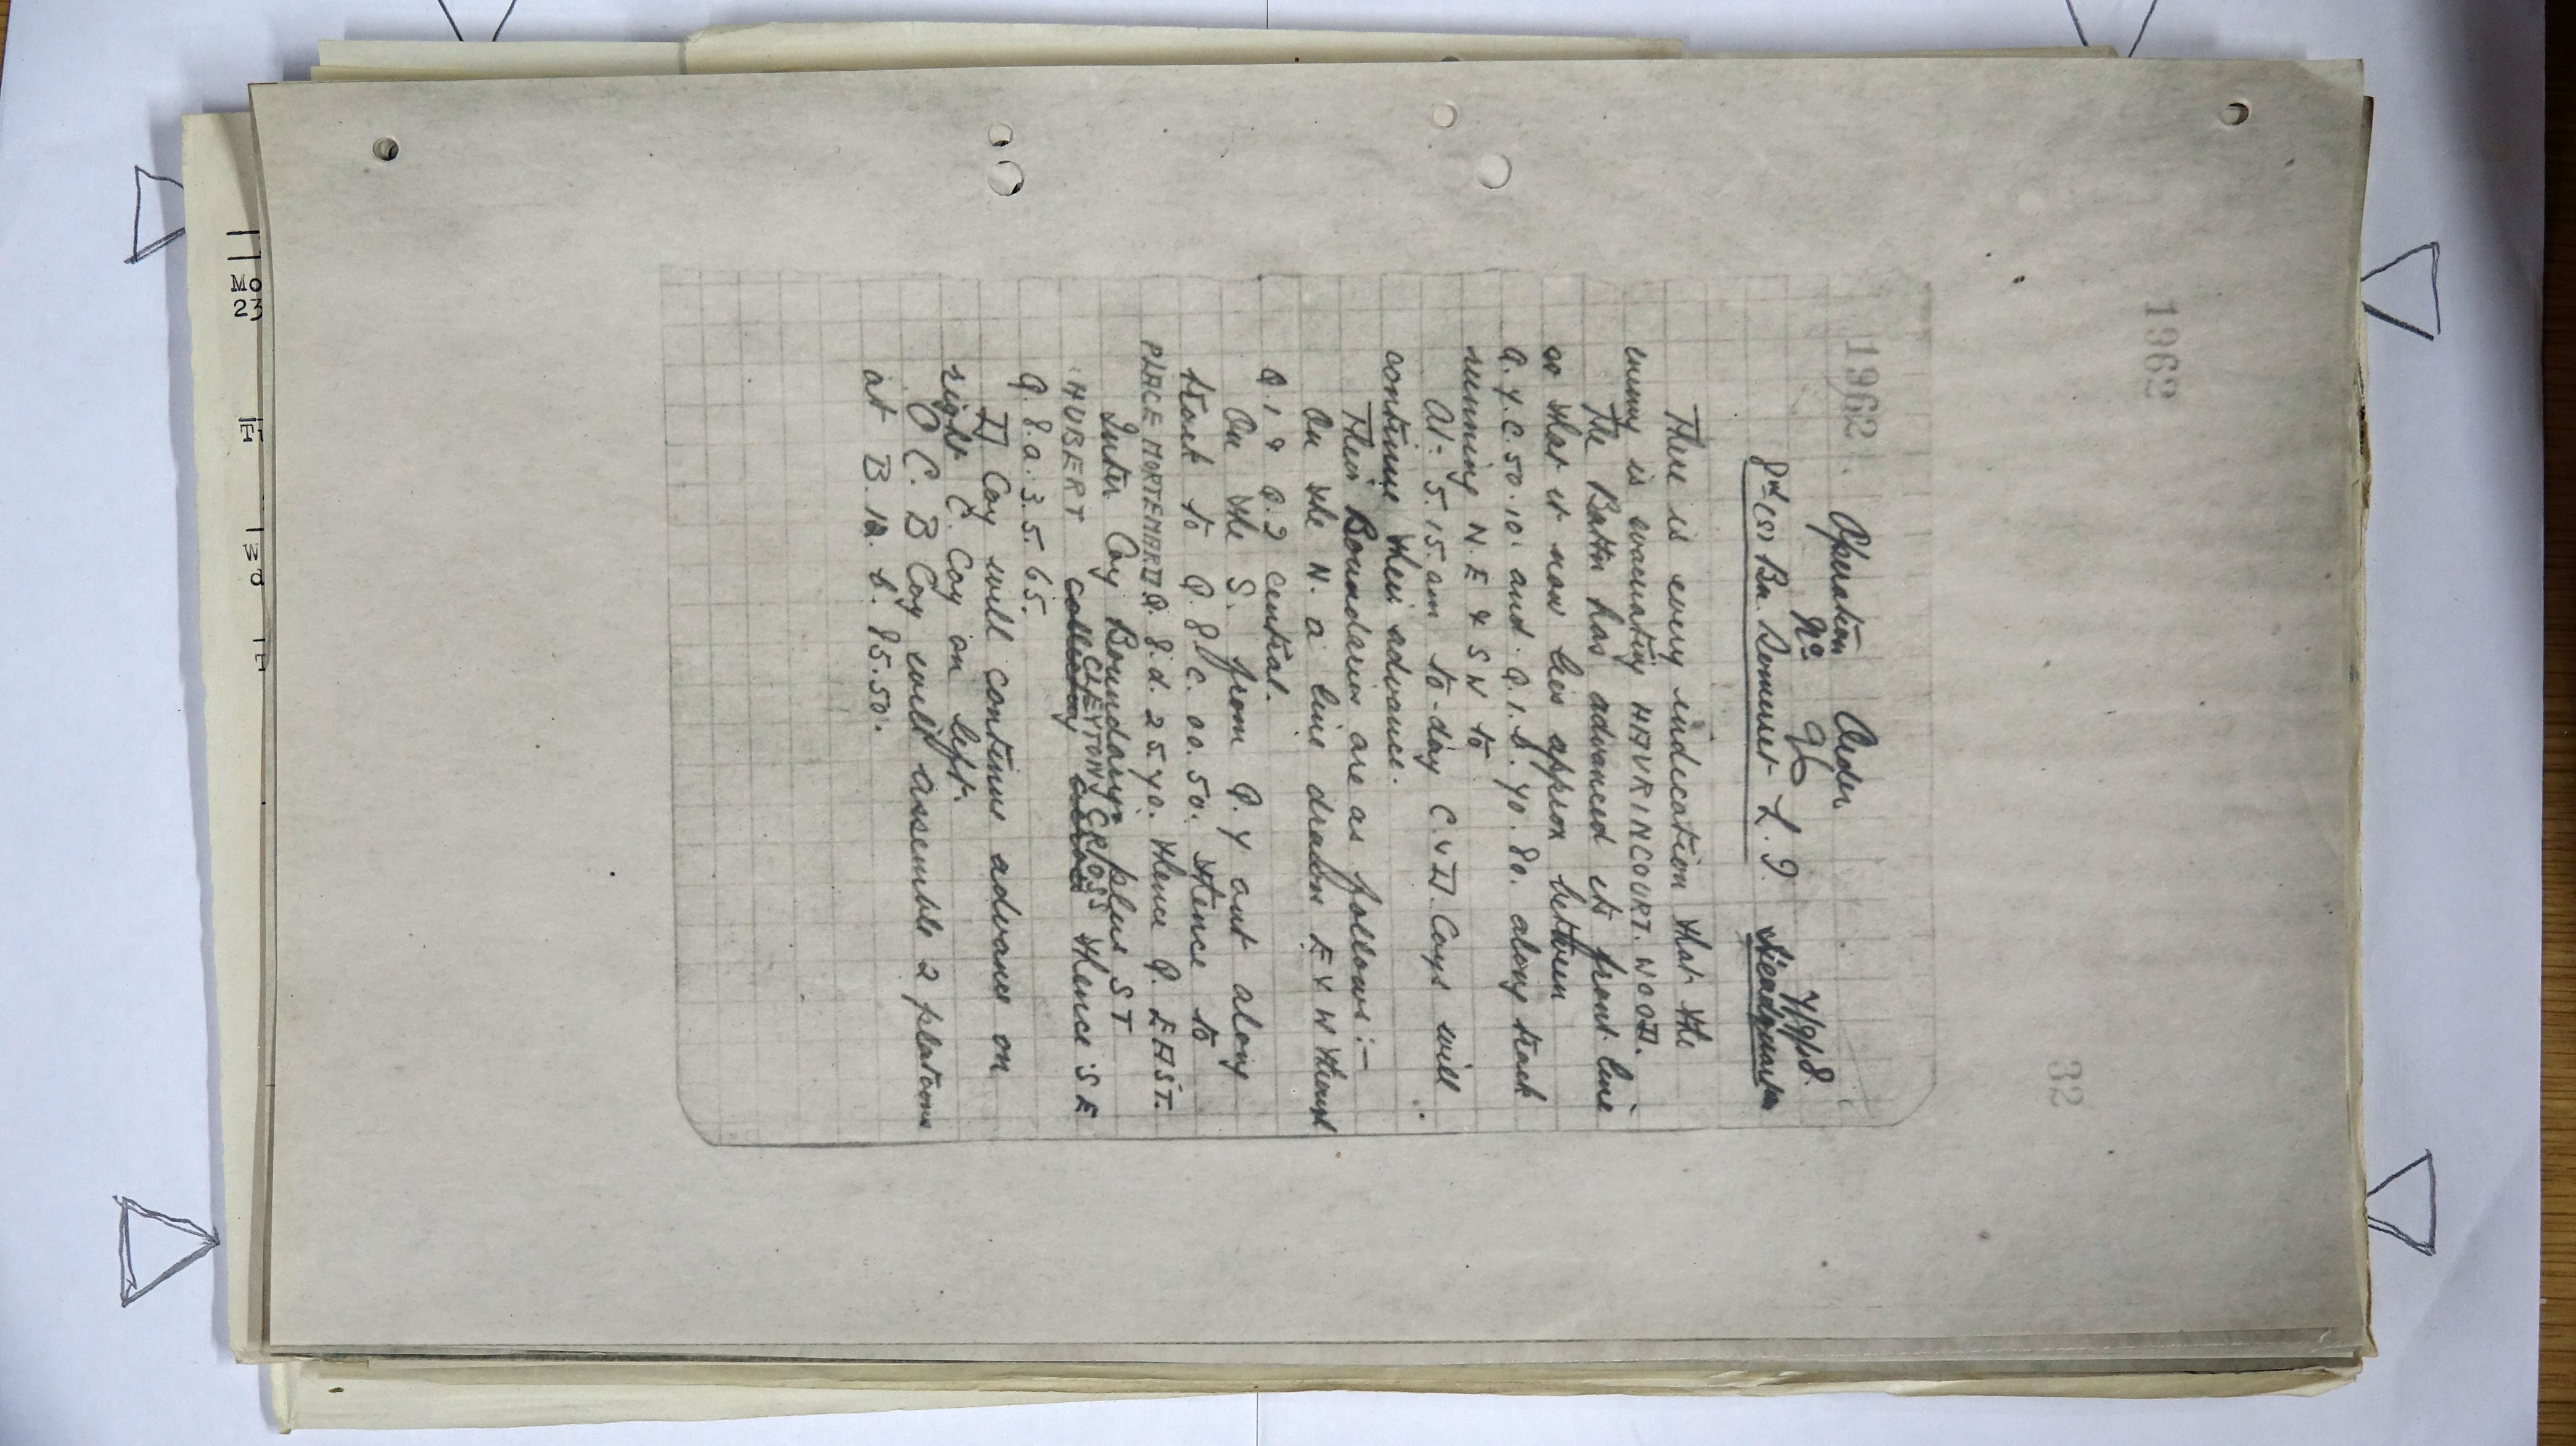 1962
1962
32
Operation Order
No 96 7/9/18.
8th (S) Bn. Somerset L.I. Headquarters
There is every indication that the
enemy is evacuating HAVRINCOURT. WOOD.
The Battn has advanced its front line
so that it now lies approx between
Q.7.C.50.10. and Q.1.b.70.80. along track
running N.E & S W to
At 5.15. am to-day C. & D. Coys will
continue their advance.
Their Boundaries are as follows:-
On the N. a line drawn E & W through
Q.1 & Q.2 central.
On the S. from Q.7 out along
track to Q.8.c.00.50. thence to
PLACE MORTEMARD Q.8.d.25.70. thence Q. EAST.
Inter Coy Boundary plus ST
CLAYTON CROSS
HUBERT thence S E
Q.8.a.35.65.
D Coy will continue advance on
right C. Coy on left.
O C. B Coy will assemble 2 platoons
at B.12.b.85.50.
Mo
23